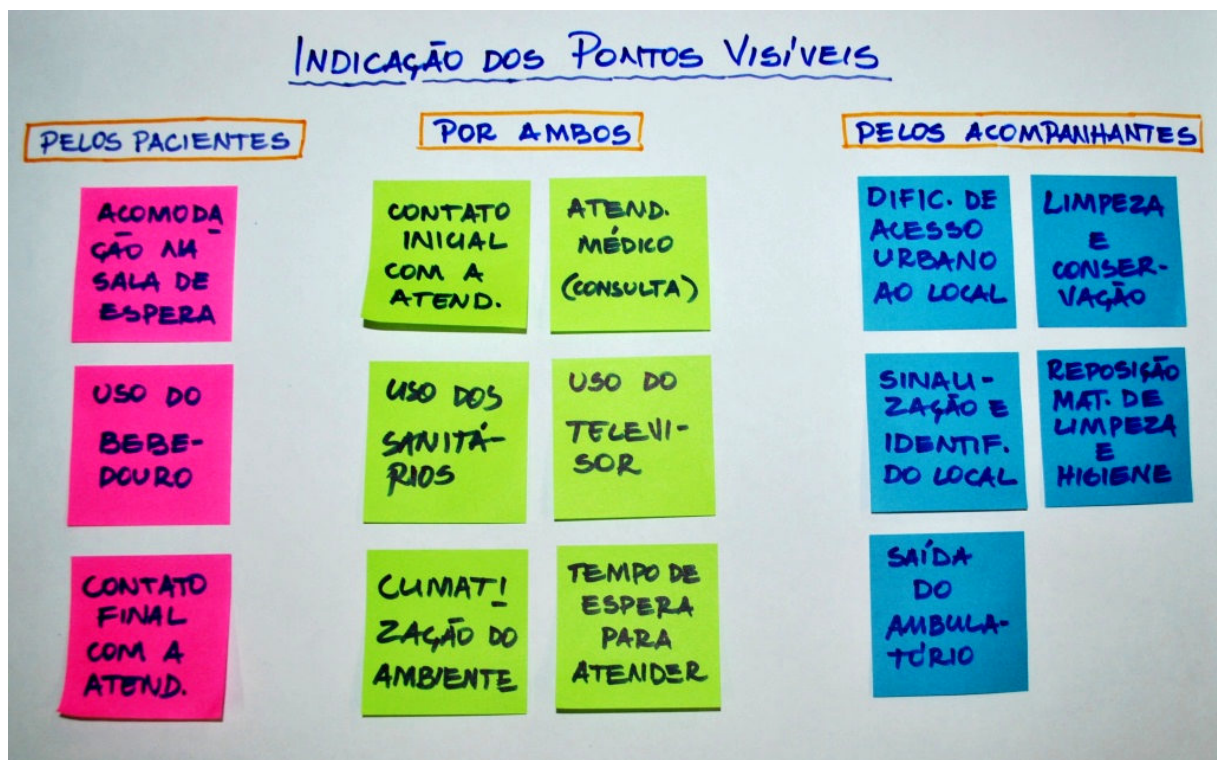 INDICAÇÃO DOS PONTOS VISÍVEIS
PELOS PACIENTES
ACOMODA
ÇÃO NA
SALA DE
ESPERA
USO DO
BEBE-
DOURO
CONTATO
FINAL
COM A
ATEND.
POR AMBOS
CONTATO
INICIAL
COM A
ATEND.
ATEND.
MÉDICO
(CONSULTA)
USO DOS
SANITÁ-
RIOS
USO DO
TELEVI-
SOR
CLIMATI
ZAÇÃO DO
AMBIENTE
TEMPO DE
ESPERA
PARA
ATENDER
PELOS ACOMPANHANTES
DIFIC. DE
ACESSO
URBANO
AO LOCAL
LIMPEZA
E
CONSER-
VAÇÃO
SINALI-
ZAÇÃO E
IDENTIF.
DO LOCAL
REPOSIÇÃO
MAT. DE
LIMPEZA
E
HIGIENE
SAÍDA
DO
AMBULA-
TÓRIO